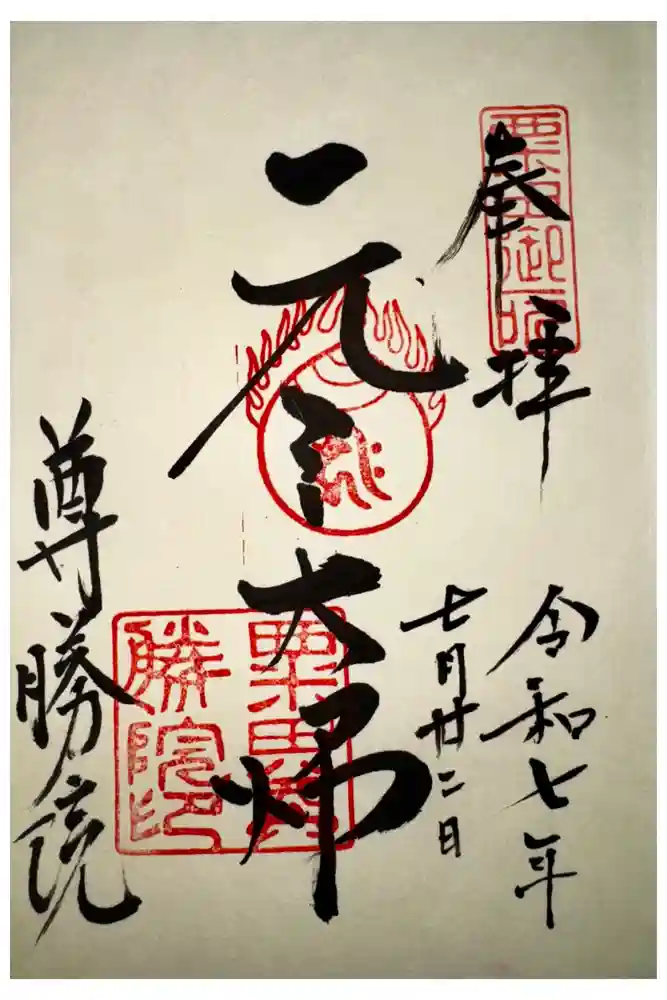 奉拝
粟田御所
令和七年
七月廿二日
元三大師
粟田尊
勝院印
尊勝院